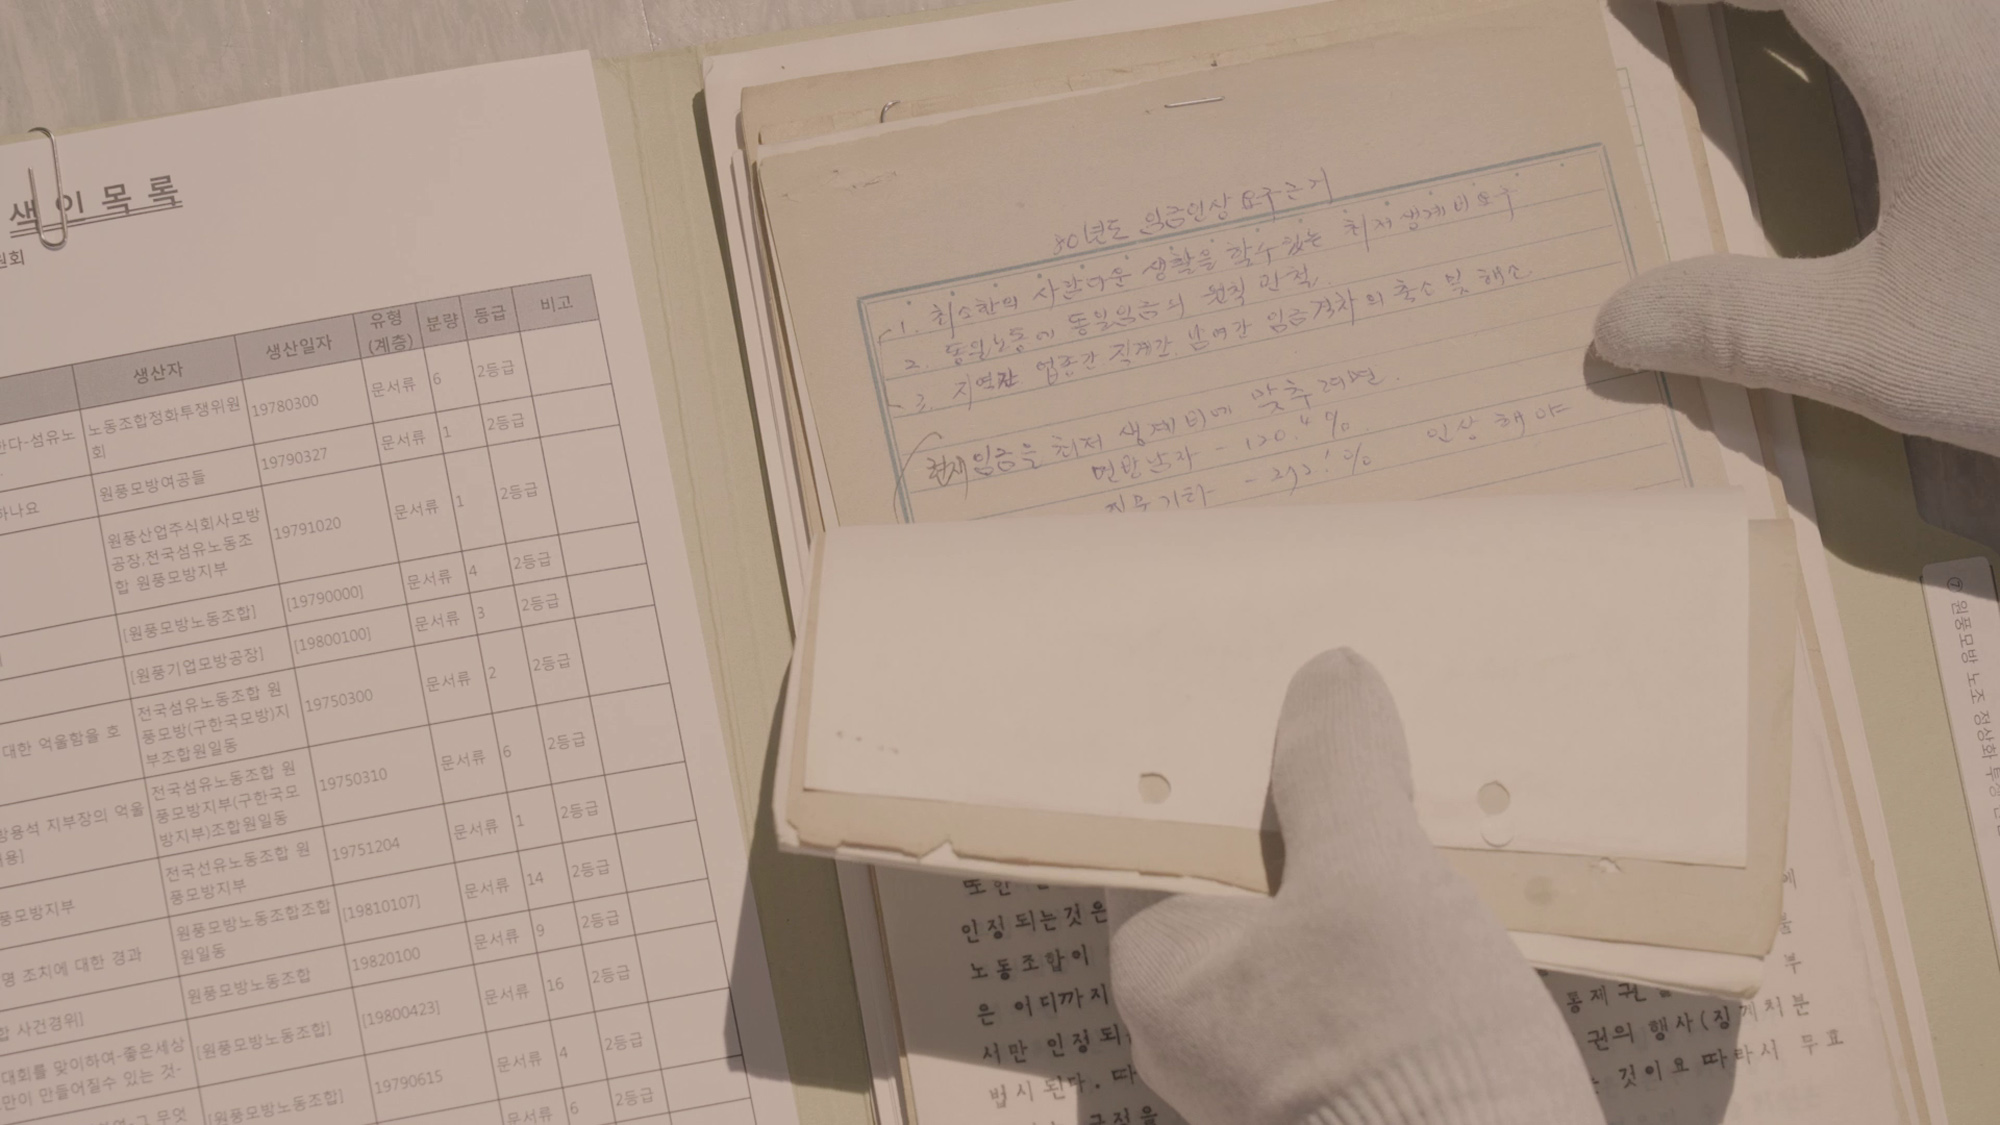 색 이 목 록
원회
생산자 생산일자 유형(계층) 분량 등급 비고
한다-섬유노 노동조합정화투쟁위원회 19780300 문서류 6 2등급
하나요 원풍모방여공들 19790327 문서류 1 2등급
원풍산업주식회사모방공장,전국섬유노동조합 원풍모방지부 19791020 문서류 1 2등급
[원풍모방노동조합] [19790000] 문서류 4 2등급
[원풍기업모방공장] [19800100] 문서류 3 2등급
대한 억울함을 호 전국섬유노동조합 원풍모방(구한국모방)지부조합원일동 19750300 문서류 2 2등급
방용석 지부장의 억울 전국섬유노동조합 원풍모방지부(구한국모방지부)조합원일동 19750310 문서류 6 2등급
풍모방지부 전국선유노동조합 원풍모방지부 19751204 문서류 1 2등급
명 조치에 대한 경과 원풍모방노동조합조합원일동 [19810107] 문서류 14 2등급
합 사건경위] 원풍모방노동조합 19820100 문서류 9 2등급
대회를 맞이하여-좋은세상 [원풍모방노동조합] [19800423] 문서류 16 2등급
만이 만들어질수 있는 것-
그 무엇 [원풍모방노동조합] 19790615 문서류 4 2등급
문서류 6 2등급
80년도 임금인상 요구근거
1. 최소한의 사람다운 생활을 할수있는 최저생계비요구
2. 동일노동에 동일임금의 원칙 관철.
3. 지역간 업종간 직계간 남여간 임금격차의 축소 및 해소
현재임금을 최저 생계비에 맞추려면.
면반남자 - 120.4% 인상해야
또한
인정되는것은
노동조합이 부
은 어디까지 통제권
서만 인정되 권의 행사(징계처분
법시된다. 것이요 따라서 무효
⑦ 원풍모방 노조 정상화 투쟁